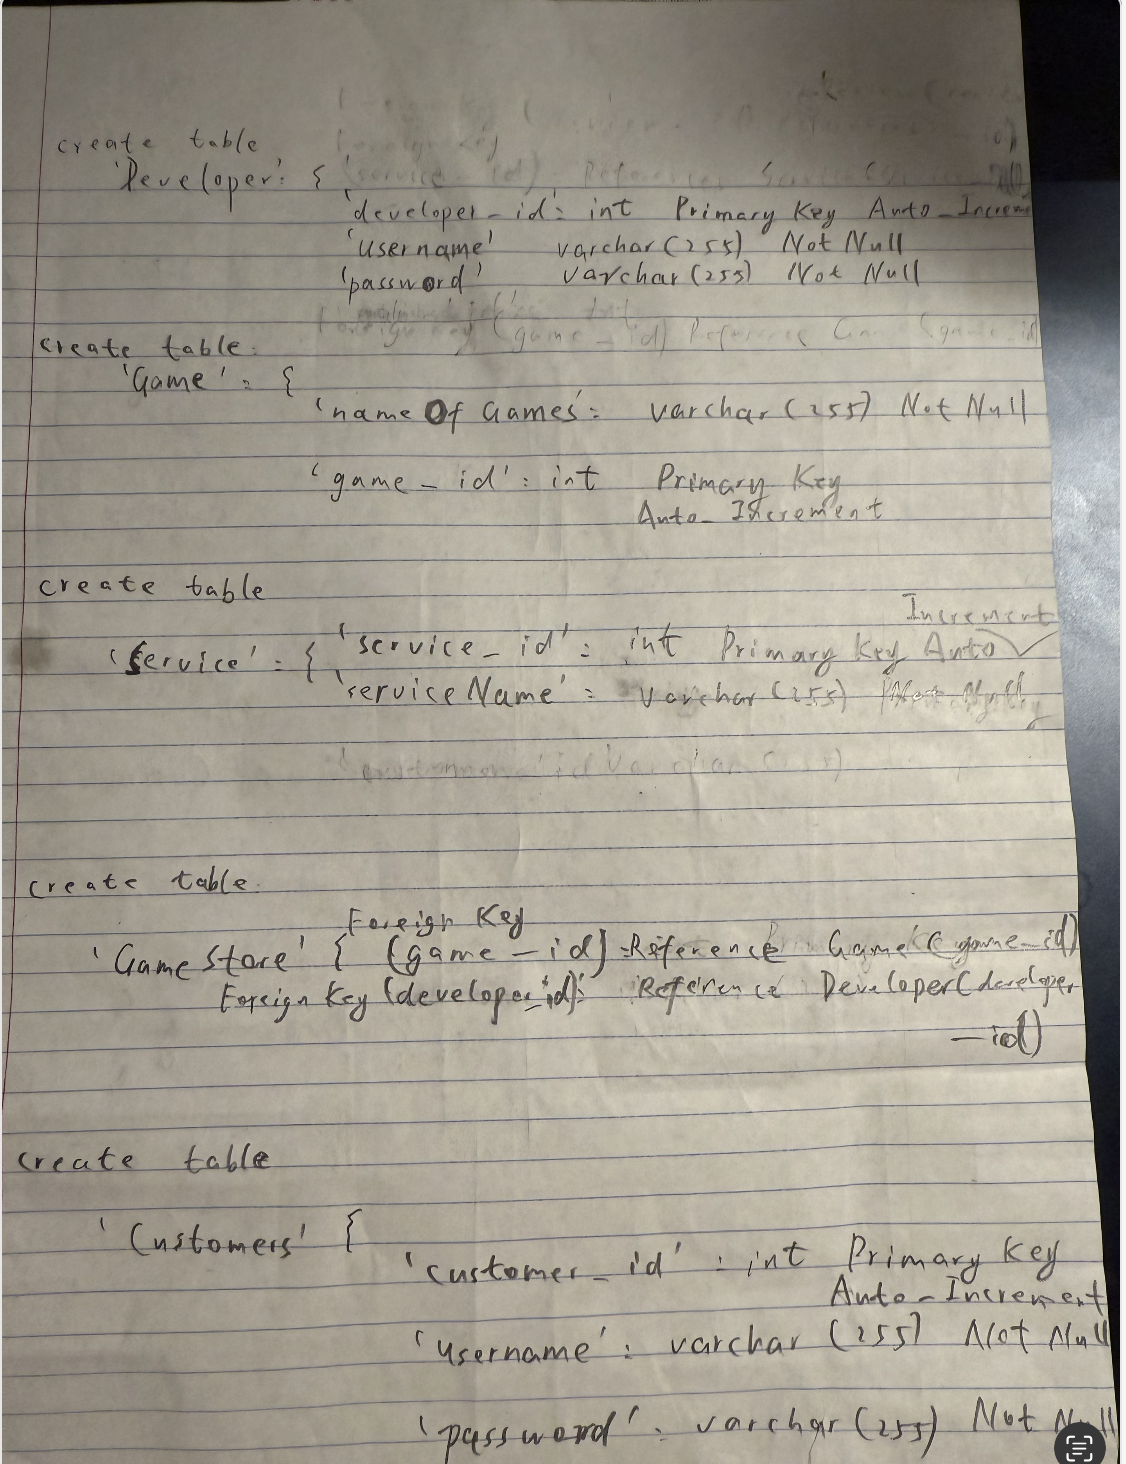 create table
'Developer': {
'developer_id': int Primary Key Auto_Increme
'username' varchar(255) Not Null
'password' varchar(255) Not Null
Foreign key (game_id) Reference Game (game_id)
create table.
'Game': {
'name Of Games': varchar(255) Not Null
'game_id': int Primary Key
Auto_Increment
create table
Increment
'service': { 'service_id': int Primary Key Auto
'serviceName': varchar(255) Not Null
create table.
Foreign Key
'Game Store' { (game_id) Reference Game (game_id)
Foreign Key (developer_id): Reference Developer(developer
_id)
create table
'Customers' {
'customer_id': int Primary Key
Auto_Increment
'username': varchar (255) Not Null
'password': varchar (255) Not Null